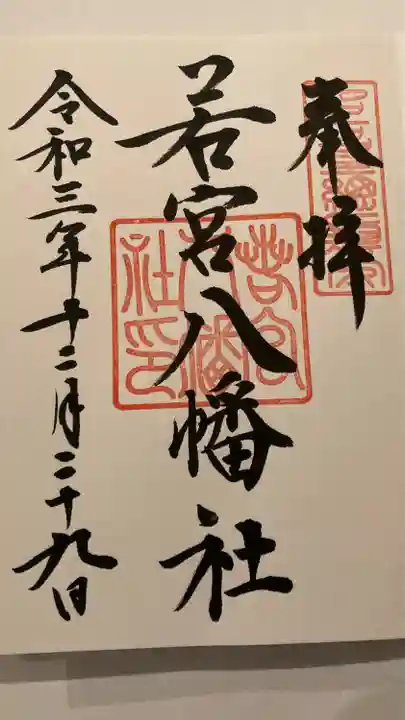 奉拝
若宮八幡社
令和三年十二月二十九日
若宮八幡社印